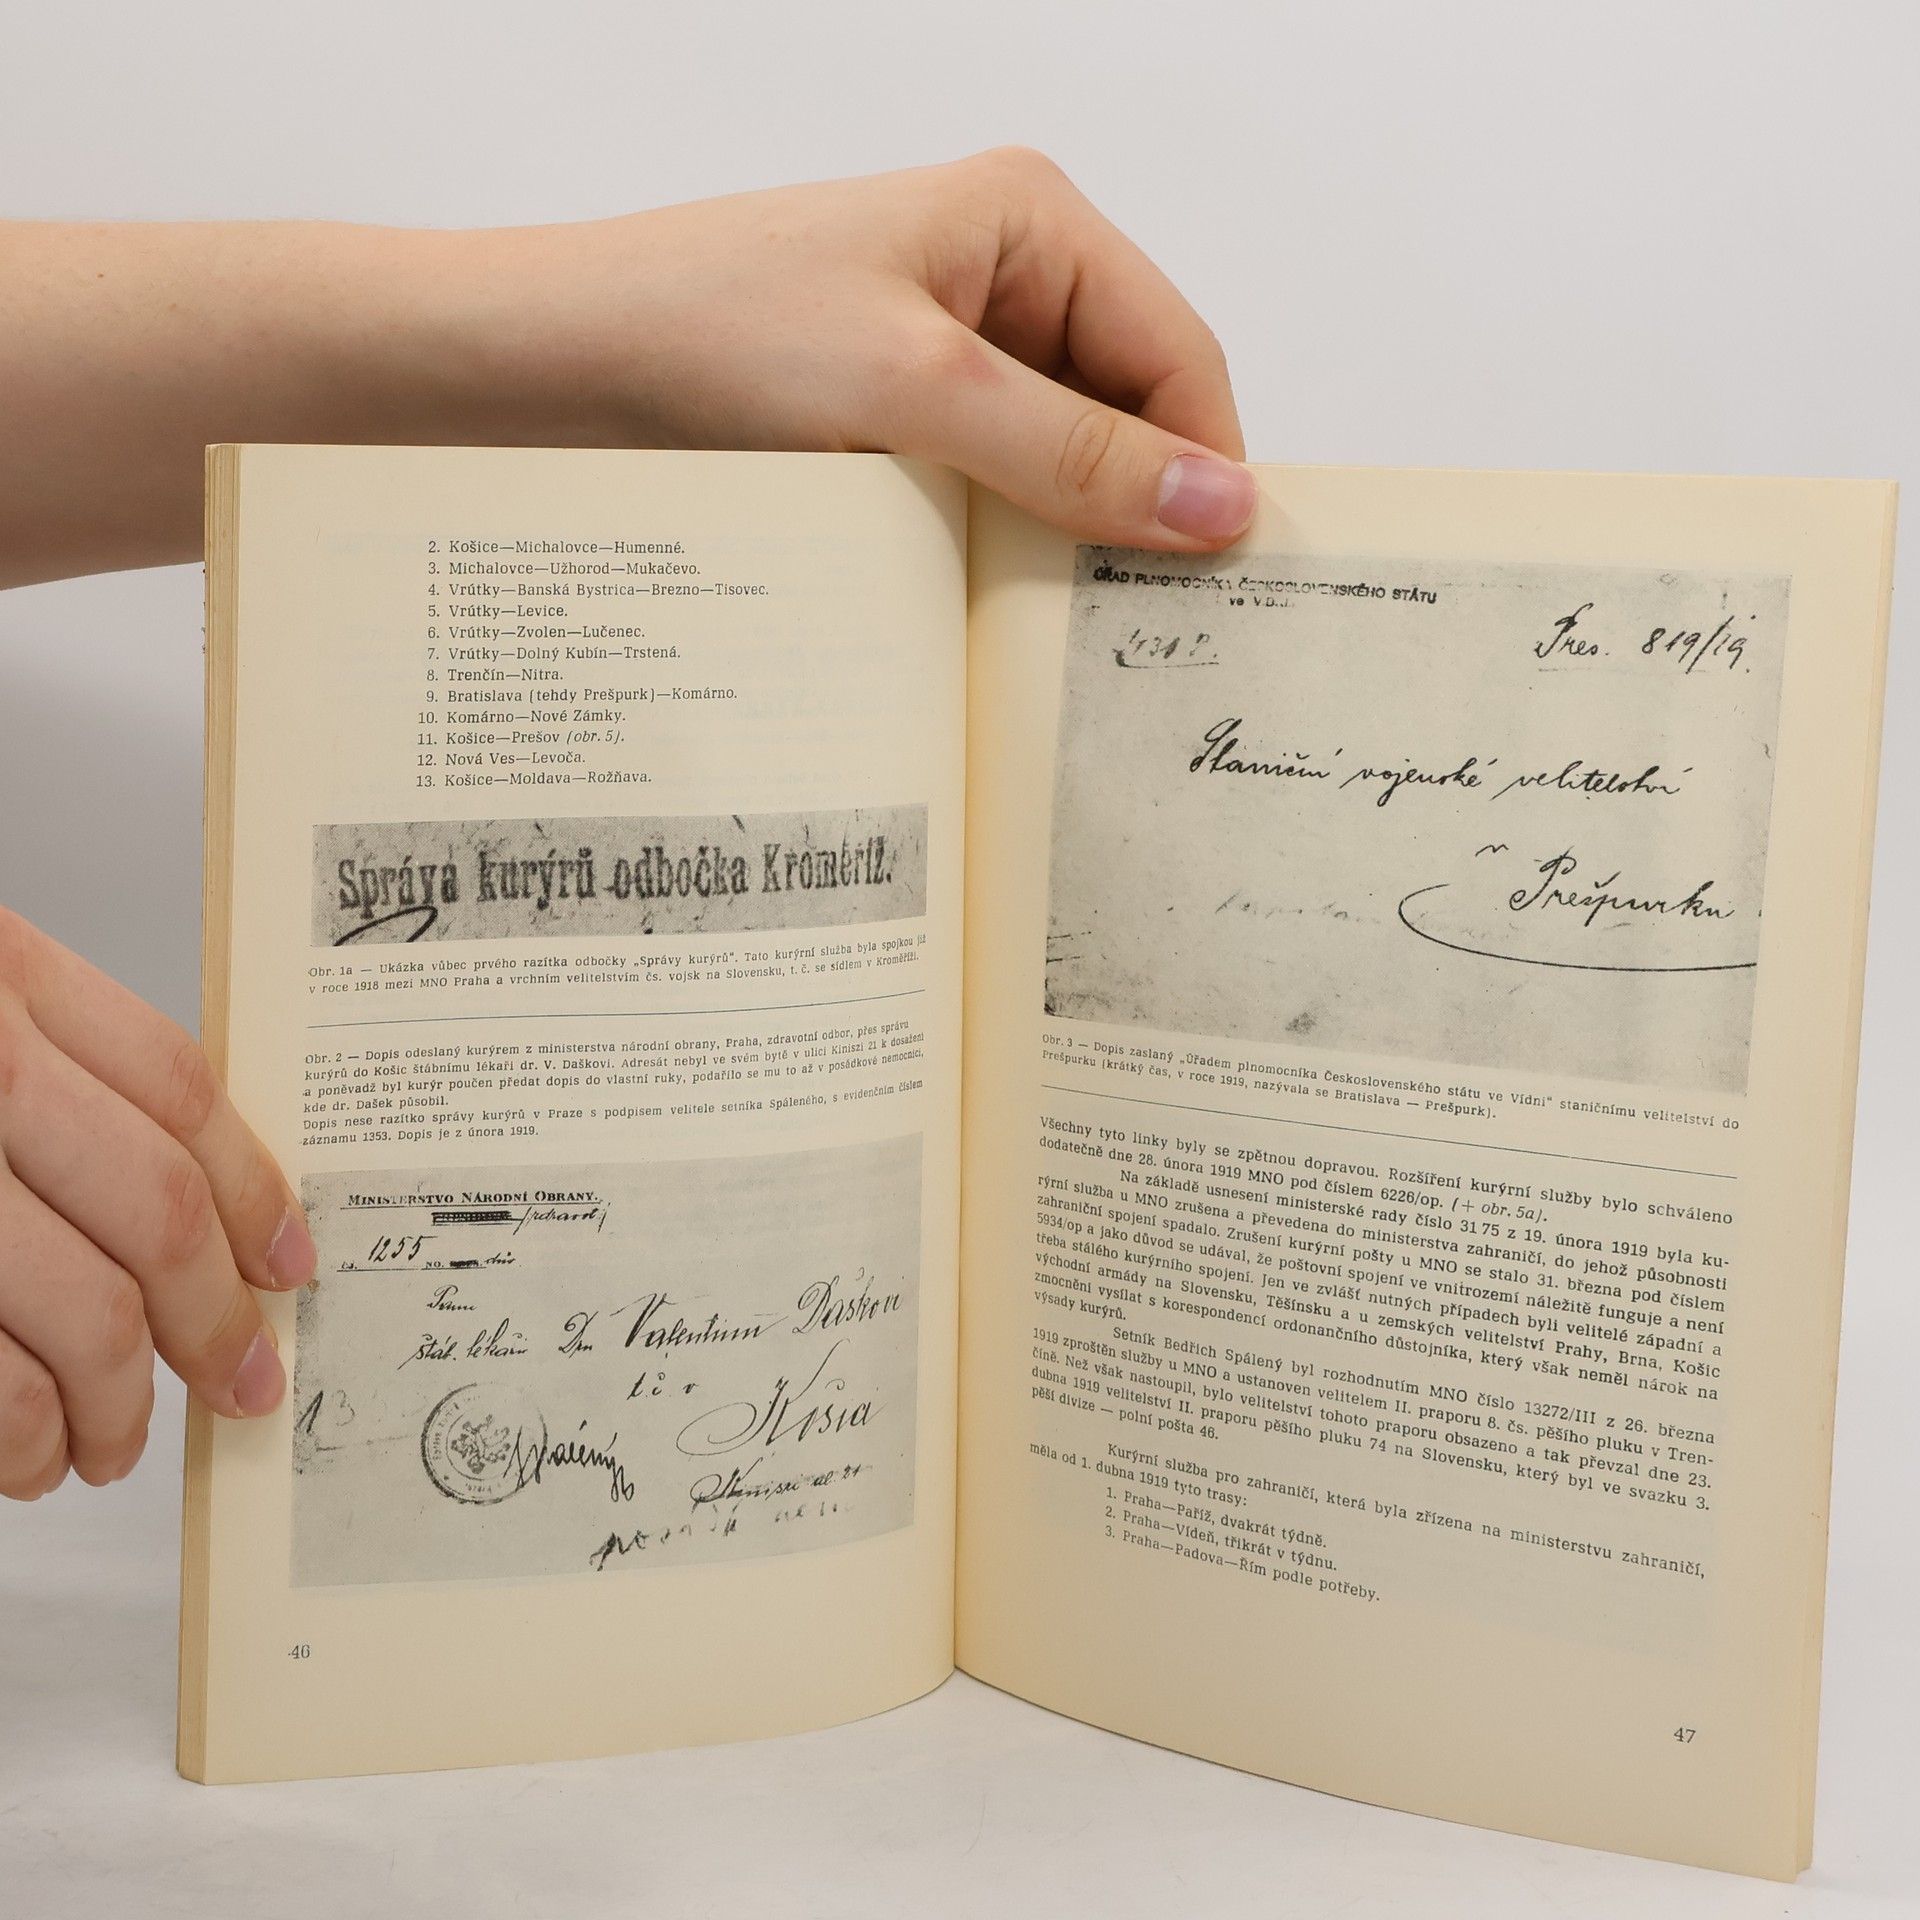 2. Košice—Michalovce—Humenné.
3. Michalovce—Užhorod—Mukačevo.
4. Vrútky—Banská Bystrica—Brezno—Tisovec.
5. Vrútky—Levice.
6. Vrútky—Zvolen—Lučenec.
7. Vrútky—Dolný Kubín—Trstená.
8. Trenčín—Nitra.
9. Bratislava (tehdy Prešpurk)—Komárno.
10. Komárno—Nové Zámky.
11. Košice—Prešov (obr. 5).
12. Nová Ves—Levoča.
13. Košice—Moldava—Rožňava.
Správa kurýrů odbočka Kroměříž.
Obr. 1a — Ukázka vůbec prvého razítka odbočky „Správy kurýrů“. Tato kurýrní služba byla spojkou již
v roce 1918 mezi MNO Praha a vrchním velitelstvím čs. vojsk na Slovensku, t. č. se sídlem v Kroměříži.
Obr. 2 — Dopis odeslaný kurýrem z ministerstva národní obrany, Praha, zdravotní odbor, přes správu
kurýrů do Košic štábnímu lékaři dr. V. Daškovi. Adresát nebyl ve svém bytě v ulici Kiniszi 21 k dosažení
a poněvadž byl kurýr poučen předat dopis do vlastní ruky, podařilo se mu to až v posádkové nemocnici,
kde dr. Dašek působil.
Dopis nese razítko správy kurýrů v Praze s podpisem velitele setníka Spáleného, s evidenčním číslem
záznamu 1353. Dopis je z února 1919.
MINISTERSTVO NÁRODNÍ OBRANY.
/zdravot/
čs. 1255 NO. dův.
Panu
štáb. lékaři Dru Valentinu Daškovi
t. č. v
Košicích
Spálený
Kiniszi ul. 21
46
ÚŘAD PLNOMOCNÍKA ČESKOSLOVENSKÉHO STÁTU
ve
Pres. 819/19.
Staniční vojenské velitelství
v Prešpurku
Obr. 3 — Dopis zaslaný „Úřadem plnomocníka Československého státu ve Vídni“ staničnímu velitelství do
Prešpurku (krátký čas, v roce 1919, nazývala se Bratislava — Prešpurk).
Všechny tyto linky byly se zpětnou dopravou. Rozšíření kurýrní služby bylo schváleno
dodatečně dne 28. února 1919 MNO pod číslem 6226/op. (+ obr. 5a).
Na základě usnesení ministerské rady číslo 31 75 z 19. února 1919 byla ku-
rýrní služba u MNO zrušena a převedena do ministerstva zahraničí, do jehož působnosti
zahraniční spojení spadalo. Zrušení kurýrní pošty u MNO se stalo 31. března pod číslem
5934/op a jako důvod se udával, že poštovní spojení ve vnitrozemí náležitě funguje a není
třeba stálého kurýrního spojení. Jen ve zvlášť nutných případech byli velitelé západní a
východní armády na Slovensku, Těšínsku a u zemských velitelství Prahy, Brna, Košic
zmocnění vysílat s korespondencí ordonančního důstojníka, který však neměl nárok na
výsady kurýrů.
Setník Bedřich Spálený byl rozhodnutím MNO číslo 13272/III z 26. března
1919 zproštěn služby u MNO a ustanoven velitelem II. praporu 8. čs. pěšího pluku v Tren-
číně. Než však nastoupil, bylo velitelství tohoto praporu obsazeno a tak převzal dne 23.
dubna 1919 velitelství II. praporu pěšího pluku 74 na Slovensku, který byl ve svazku 3.
pěší divize — polní pošta 46.
Kurýrní služba pro zahraničí, která byla zřízena na ministerstvu zahraničí,
měla od 1. dubna 1919 tyto trasy:
1. Praha—Paříž, dvakrát týdně.
2. Praha—Vídeň, třikrát v týdnu.
3. Praha—Padova—Řím podle potřeby.
47